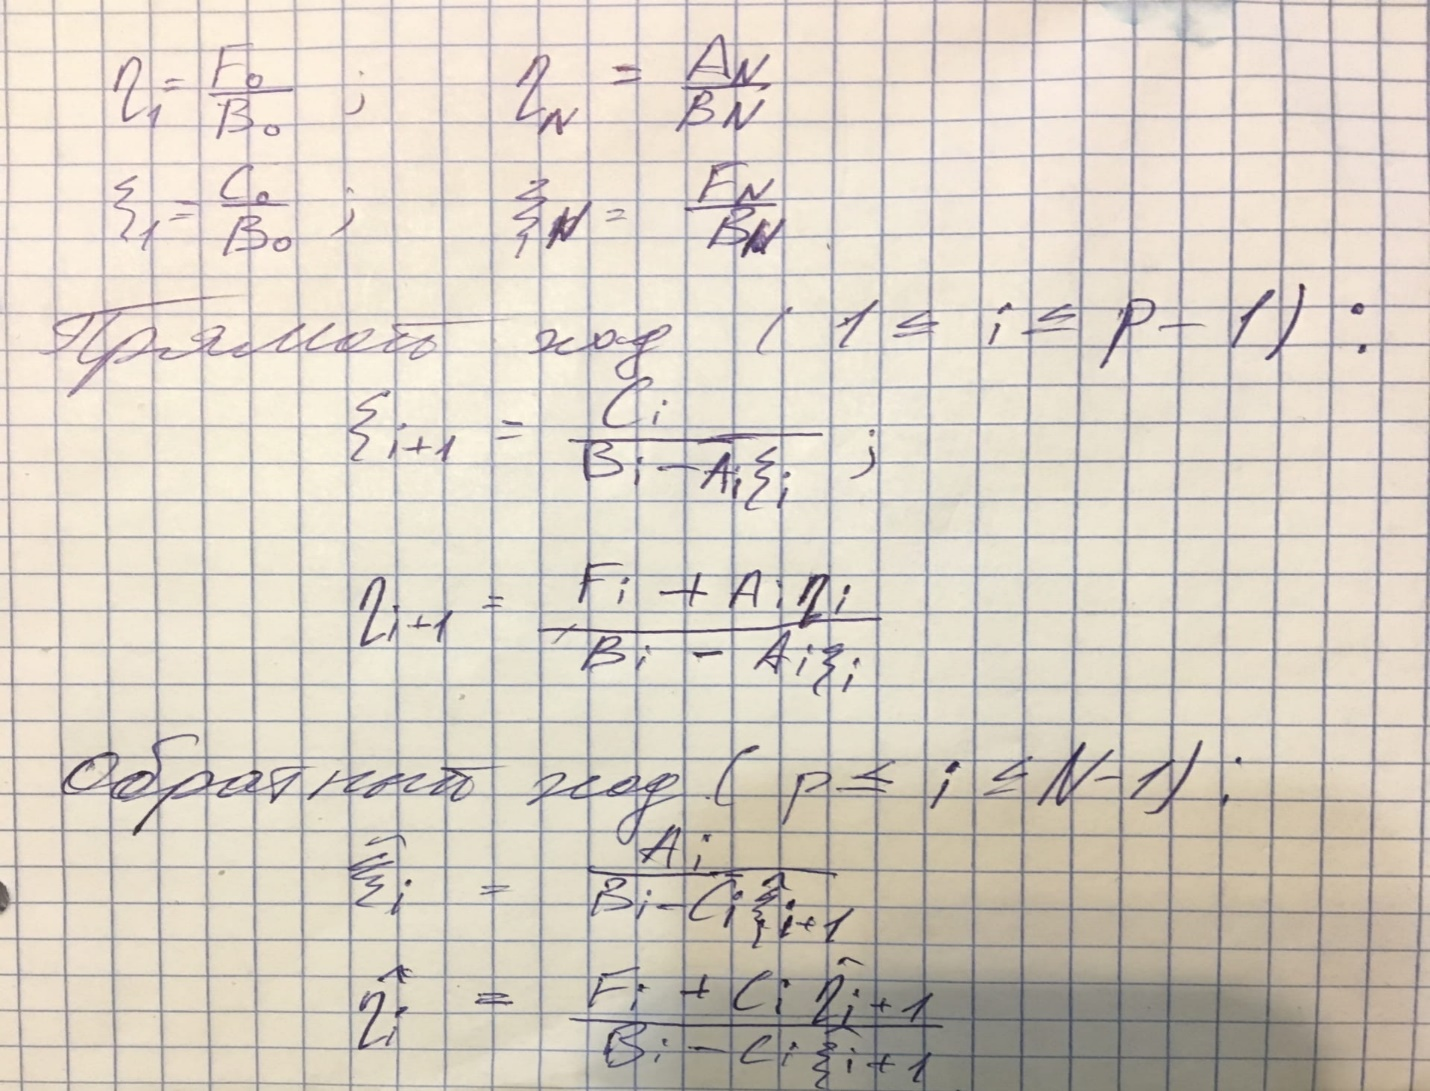 η₁ = F₀/B₀ ; η_N = A_N/B_N
ξ₁ = C₀/B₀ ; ξ_N = F_N/B_N
Прямой ход ( 1 ≤ i ≤ p - 1) :
ξᵢ₊₁ = Cᵢ/(Bᵢ - Aᵢξᵢ) ;
ηᵢ₊₁ = (Fᵢ + Aᵢηᵢ)/(Bᵢ - Aᵢξᵢ)
Обратный ход ( p ≤ i ≤ N-1) :
ξ̂ᵢ = Aᵢ/(Bᵢ - Cᵢξ̂ᵢ₊₁)
η̂ᵢ = (Fᵢ + Cᵢη̂ᵢ₊₁)/(Bᵢ - Cᵢξ̂ᵢ₊₁)